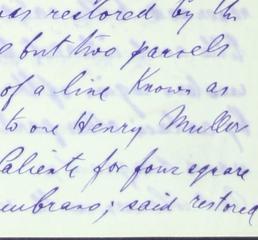 was restored by the
but two parcels
of a line Known as
to one Henry Muller
Caliente for four square
embrano; said restored